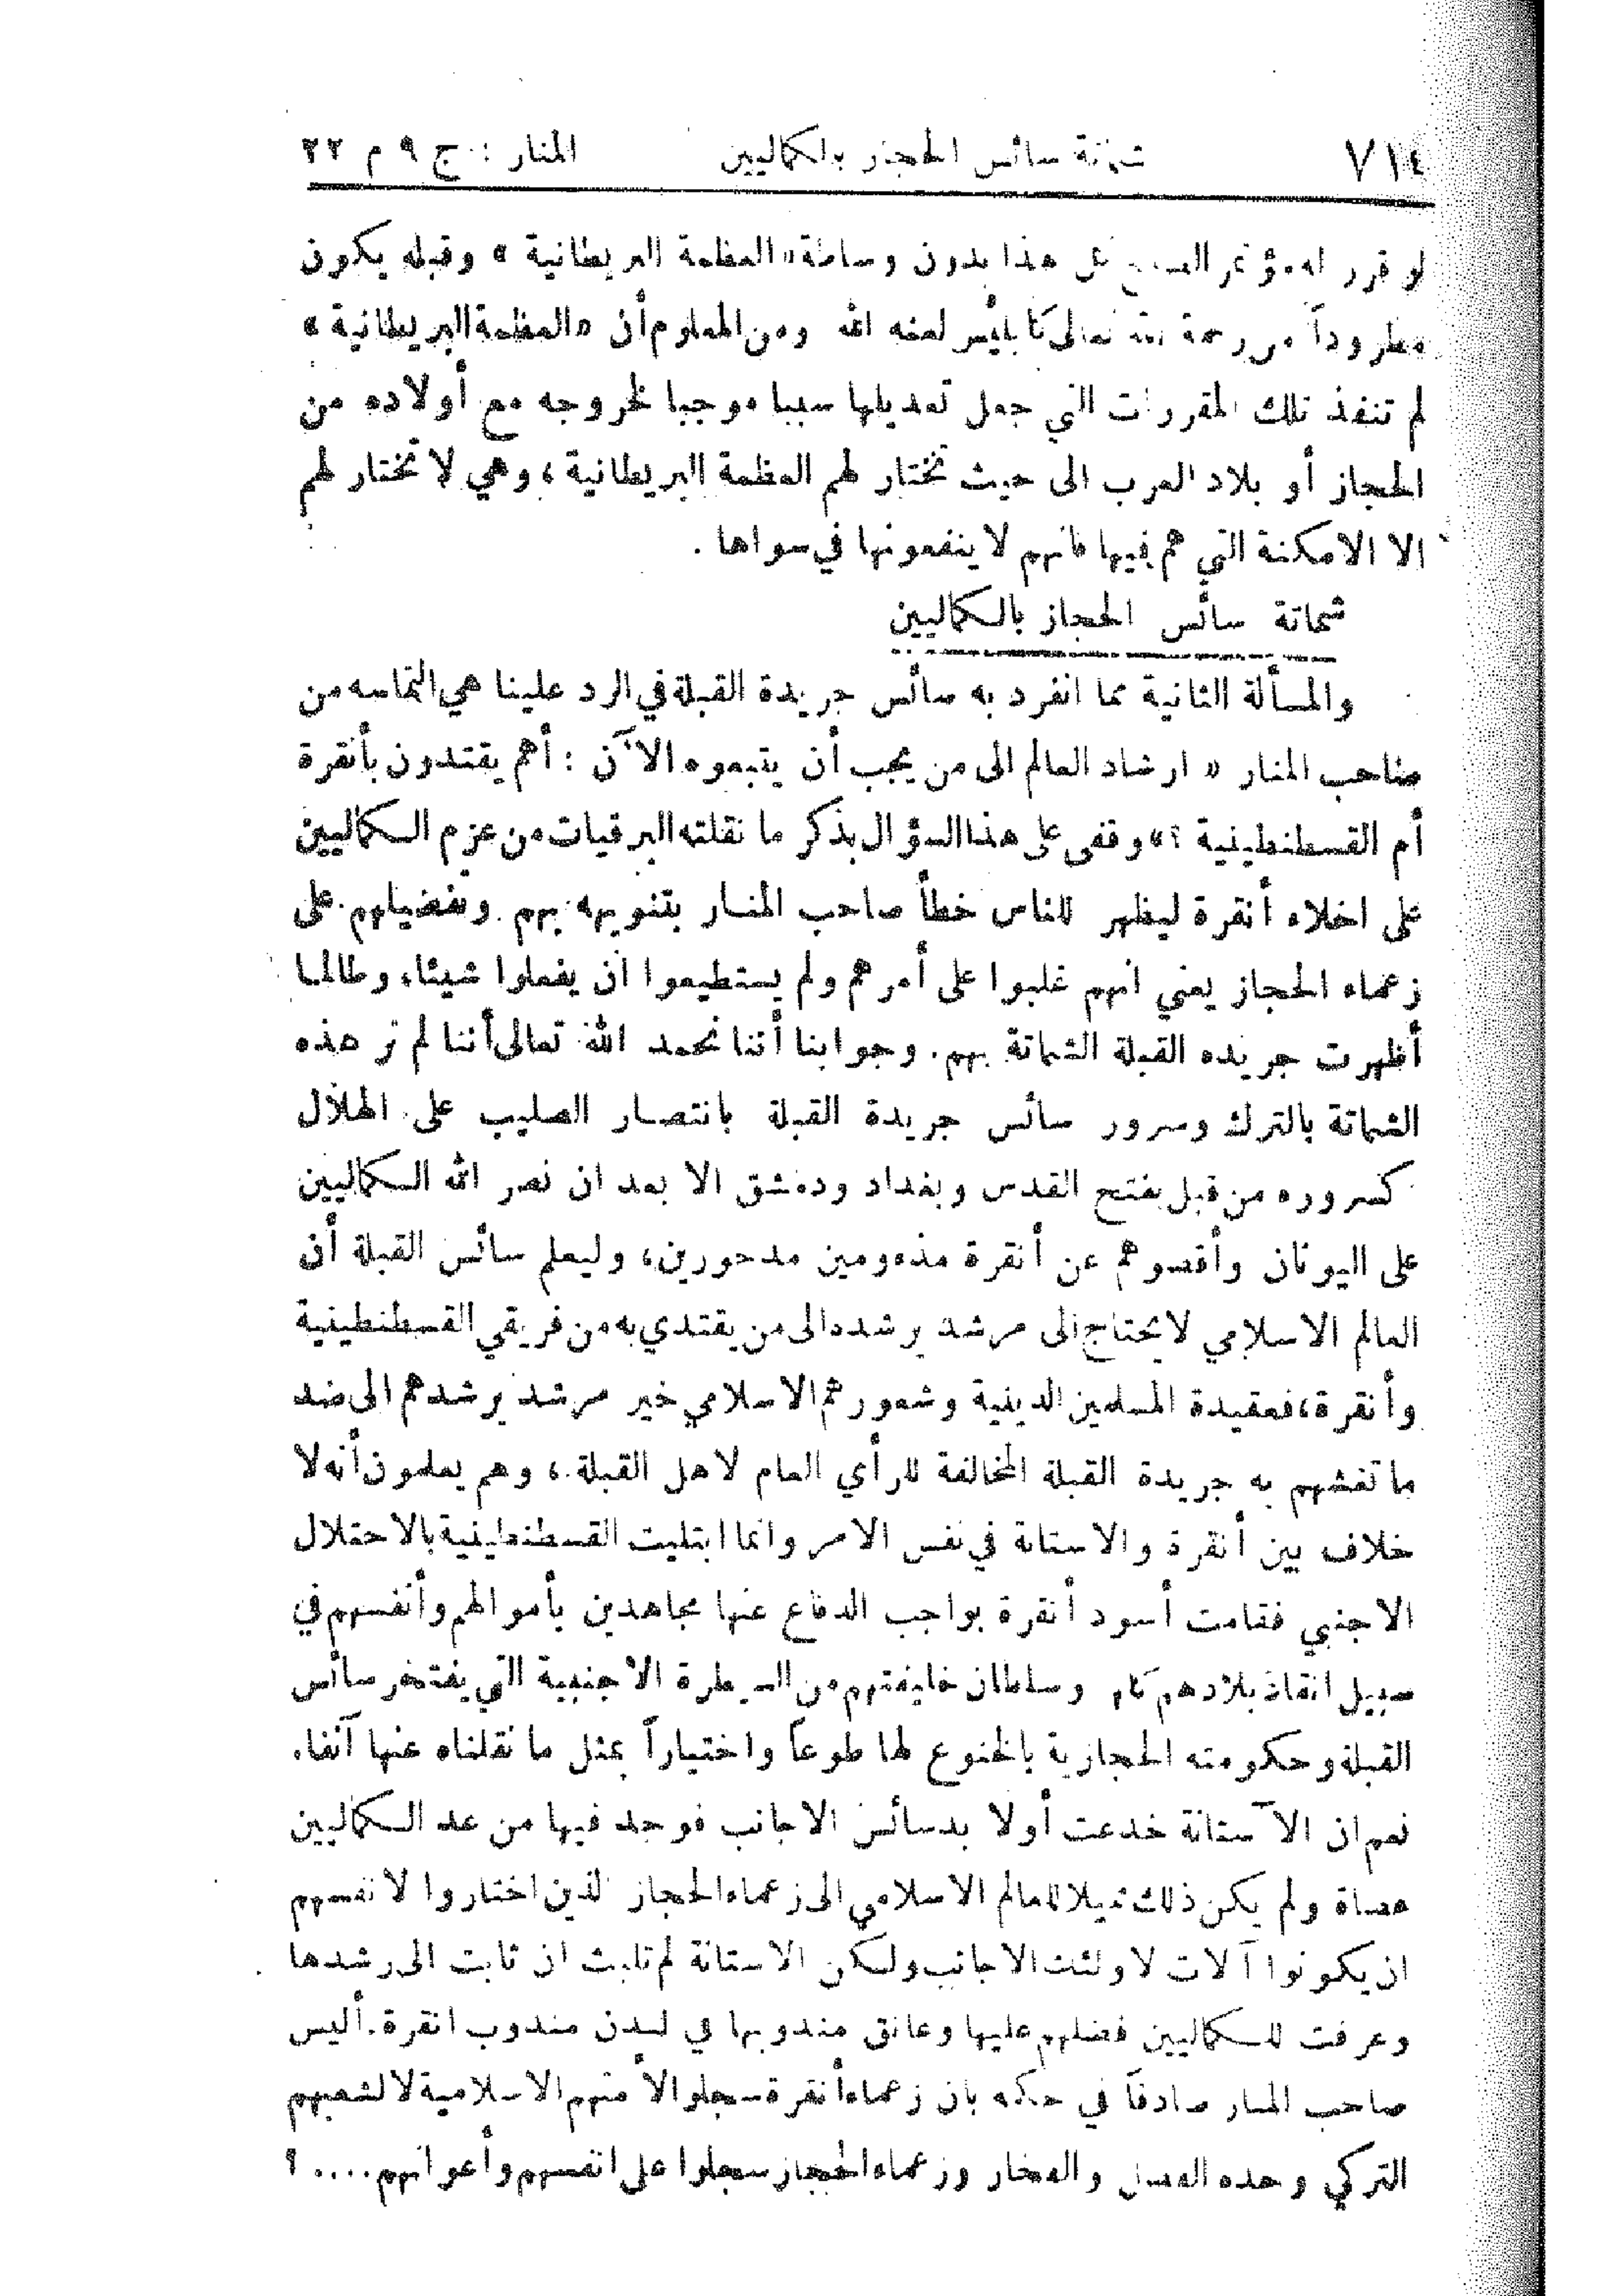 ٧١٤ شماتة سائس الحجاز بالكماليين المنار : ج ٩ م ٢٢
لو قرر له مؤتمر الصلح كل هذا بدون وساطة « العظمة البريطانية » وقبله يكون
مطروداً من رحمة الله تعالى كابليس لعنه الله ومن المعلوم أن « العظمة البريطانية »
لم تنفذ تلك المقررات التي جعل تعديلها سببا موجبا لخروجه مع أولاده من
الحجاز أو بلاد العرب الى حيث تختار لهم العظمة البريطانية ، وهي لا تختار لهم
الا الامكنة التي هم فيها فانهم لا ينفعونها في سواها .
شماتة سائس الحجاز بالكماليين
والمسألة الثانية مما انفرد به سائس جريدة القبلة في الرد علينا هي التماسه من
صاحب المنار « ارشاد العالم الى من يجب أن يتبعوه الآن : أهم يقتدون بأنقرة
أم القسطنطينية ؟ » وقفى على هذا السؤال بذكر ما نقلته البرقيات من عزم الكماليين
على اخلاء أنقرة ليظهر للناس خطأ صاحب المنار بتنويهه بهم وتفضيلهم على
زعماء الحجاز يعني انهم غلبوا على أمرهم ولم يستطيعوا ان يفعلوا شيئا، وطالما
أظهرت جريده القبلة الشماتة بهم. وجوابنا أننا نحمد الله تعالى أننا لم نر هذه
الشماتة بالترك وسرور سائس جريدة القبلة بانتصار الصليب على الهلال
كسروره من قبل بفتح القدس وبغداد ودمشق الا بعد ان نصر الله الكماليين
على اليونان وأقصوهم عن أنقرة مذءومين مدحورين، وليعلم سائس القبلة أن
العالم الاسلامي لا يحتاج الى مرشد يرشده الى من يقتدي به من فريقي القسطنطينية
وأنقرة، فعقيدة المسلمين الدينية وشعورهم الاسلامي خير مرشد يرشدهم الى ضد
ما تغشهم به جريدة القبلة المخالفة للرأي العام لاهل القبلة ، وهم يعلمون أنه لا
خلاف بين أنقرة والاستانة في نفس الامر وانما ابتليت القسطنطينية بالاحتلال
الاجنبي فقامت أسود أنقرة بواجب الدفاع عنها مجاهدين بأموالهم وأنفسهم في
سبيل انقاذ بلادهم وسلطان خليفتهم من السيطرة الاجنبية التي يفتخر سائس
القبلة وحكومته الحجازية بالخنوع لها طوعاً واختياراً بمثل ما نقلناه عنها آنفا.
نعم ان الآستانة خدعت أولا بدسائس الاجانب فوجد فيها من عد الكماليين
عصاة ولم يكن ذلك مميلا للعالم الاسلامي الى زعماء الحجاز الذين اختاروا لانفسهم
ان يكونوا آلات لاولئك الاجانب ولكن الاستانة لم تلبث ان ثابت الى رشدها
وعرفت للكماليين فضلهم عليها وعانق مندوبها في لندن مندوب انقرة. أليس
صاحب المنار صادقاً في حكمه بان زعماء أنقرة سجلوا لأمتهم الاسلامية لا لشعبهم
التركي وحده الفضل والفخار وزعماء الحجاز سجلوا على انفسهم وأعوانهم .... ؟